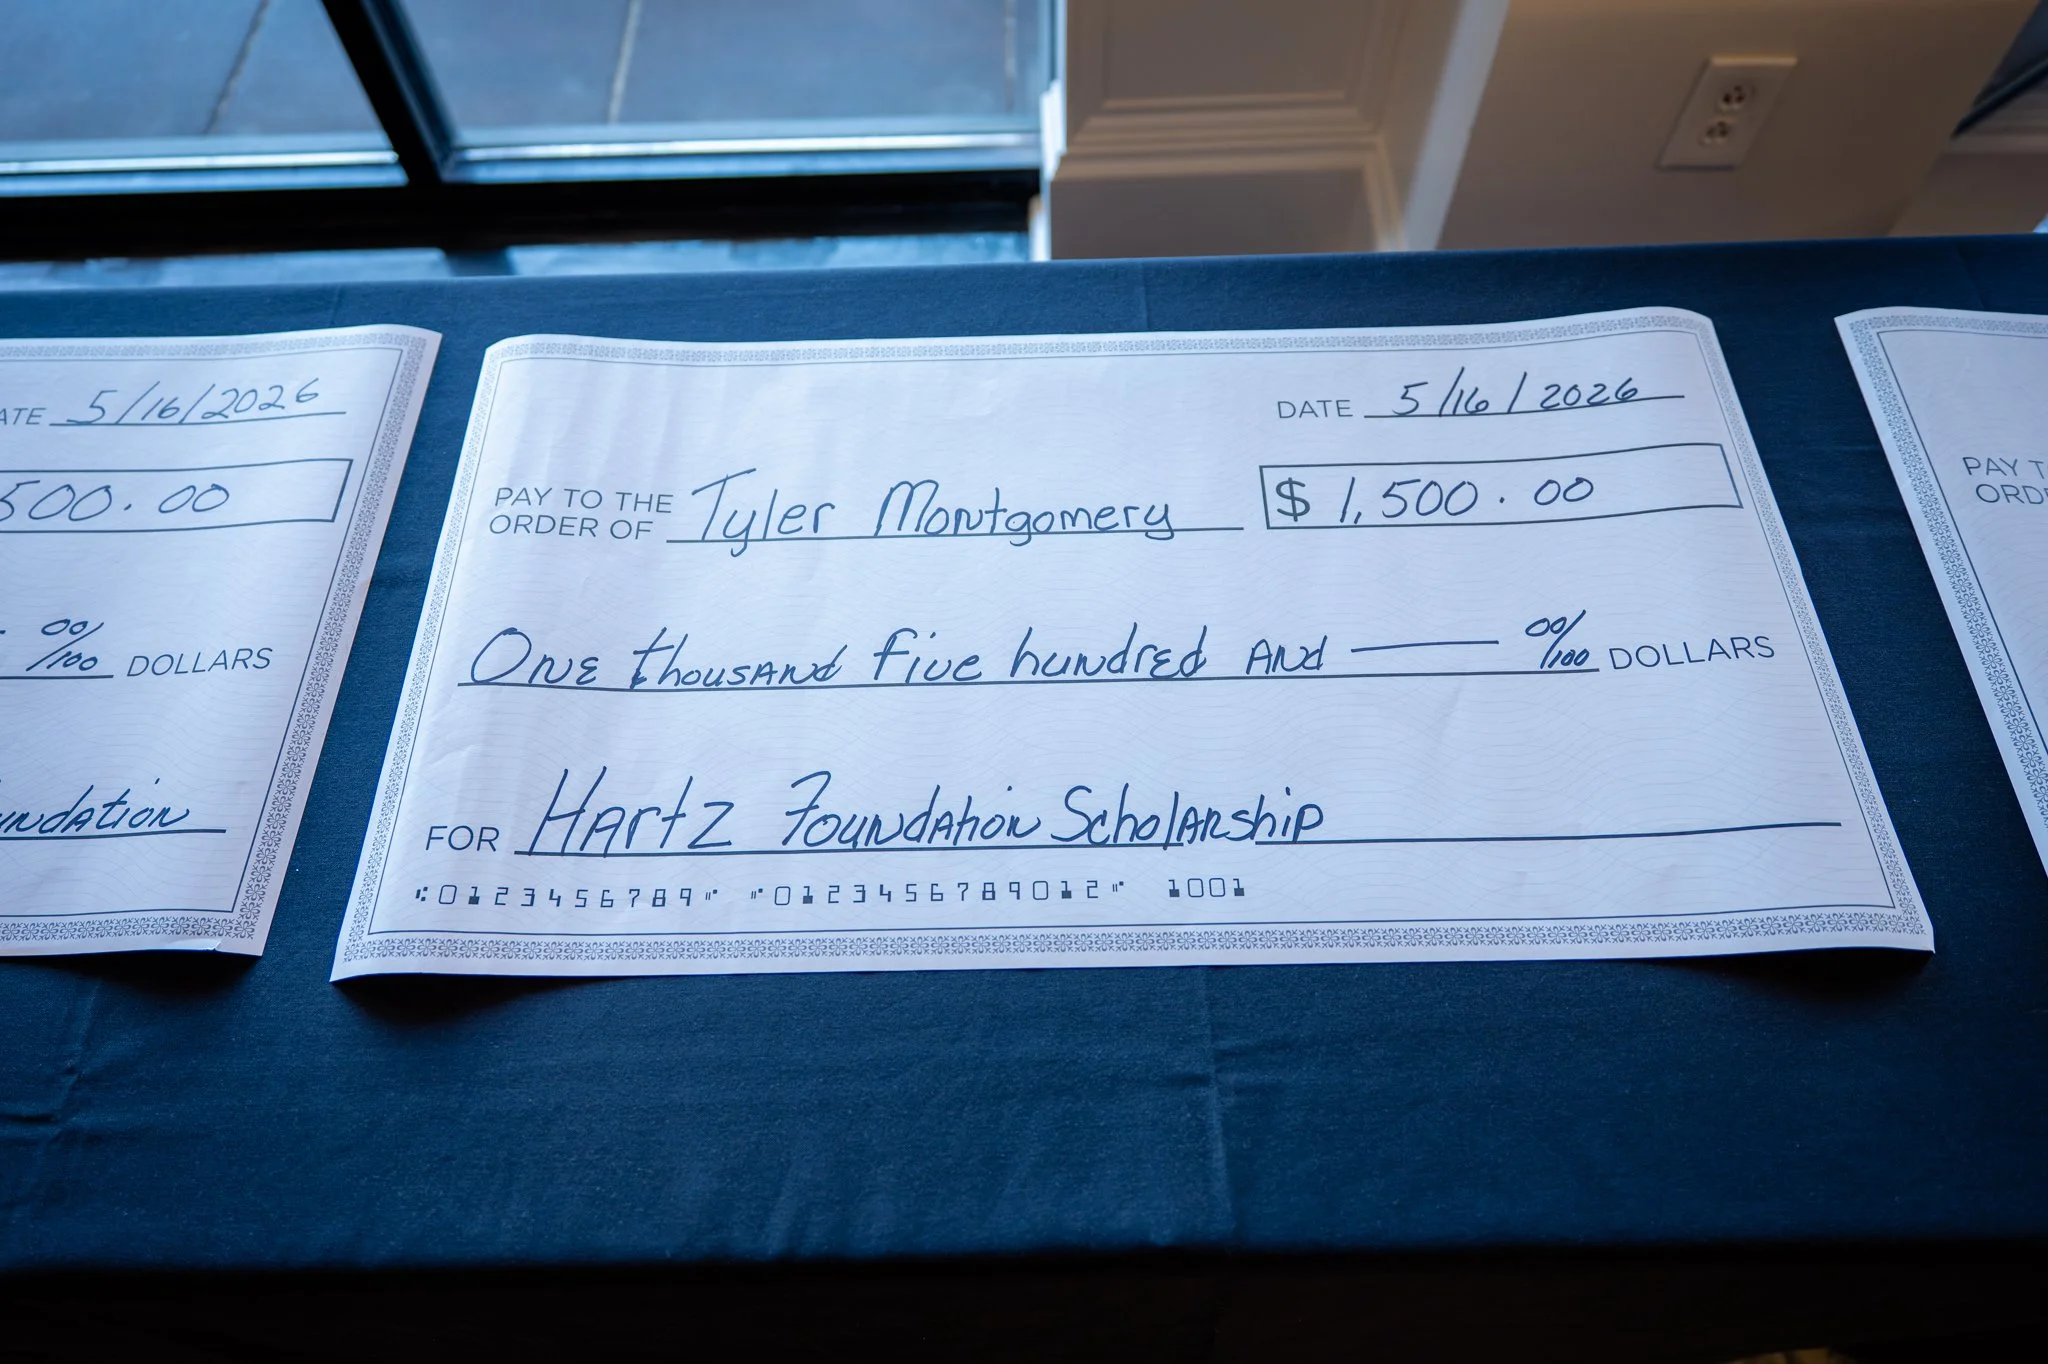 ATE 5/16/2026
500.00
00/100 DOLLARS
undation
DATE 5/16/2026
PAY TO THE
ORDER OF Tyler Montgomery $ 1,500.00
One thousand five hundred and —— 00/100 DOLLARS
FOR Hartz Foundation Scholarship
⑆0123456789⑈ ⑈0123456789012⑈ 1001
PAY T
ORD